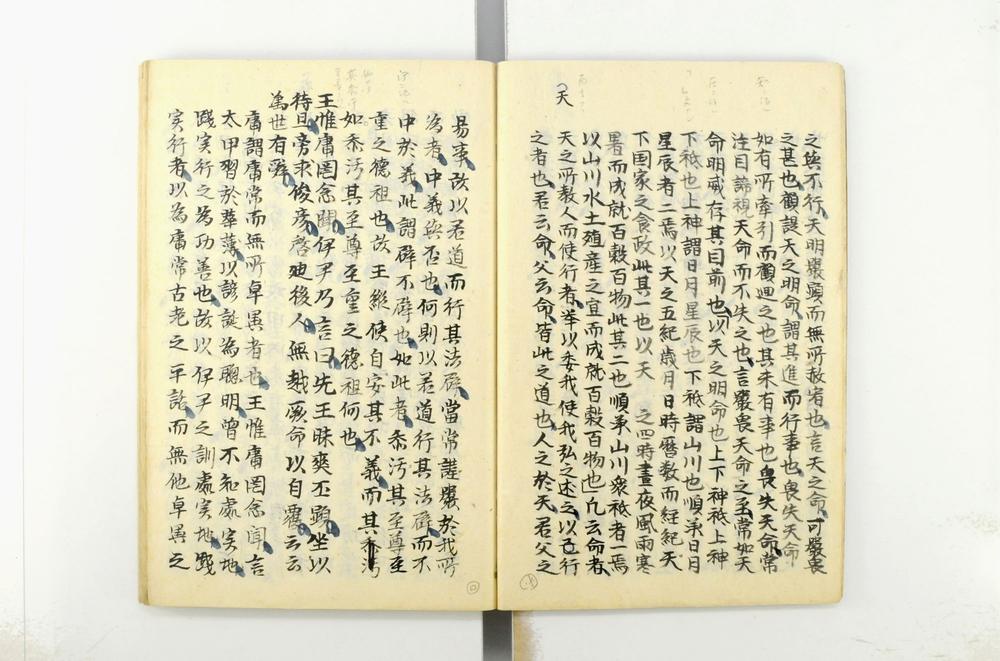 之與不行天明嚴顯而無所赦宥也言天之命可嚴畏
之甚也顧諟天之明命謂其進而行事也畏失天命
如有所牽引而顧迴之也其未有事也畏失天命常
注目諦視天命而不失之也言嚴畏天命之至常如天
命明威存其目前也以天之明命也上下神祗上神
下祗也上神謂日月星辰也下祗謂山川也順承日月
星辰者二焉以天之五紀歳月日時曆数而経紀天
下国家之食政此其一也以天 之四時晝夜風雨寒
暑而成就百穀百物此其二也順承山川衆祗者一焉
以山川水土殖産之宜而成就百穀百物也凡云命者
天
天之所教人而使行者举以委我使我弘之述之以之行
之者也君云命父云命皆此之道也人之於天君父之
易事故以若道而行其法辟當常謹嚴於我所
為者中義與否也何則以若道行其法辟而不
中於義此謂辟不辟也如此者忝汚其至尊至
重之德祖也故王縱使自安其不 義而其忝汚
如忝汚其至尊至重之德祖何也
王惟庸罔念聞伊尹乃言曰先王昧爽丕顯坐以
待旦旁求俊彦啓迪後人無越厥命以自覆云云
萬世有辭
庸謂庸常而無所卓異者也王惟庸罔念聞言
太甲習於葬薄以諺誕為聰明曾不知處実地
踐実行之為功善也故以伊尹之訓處実地踐
実行者以為庸常古老之平話而無他卓異之